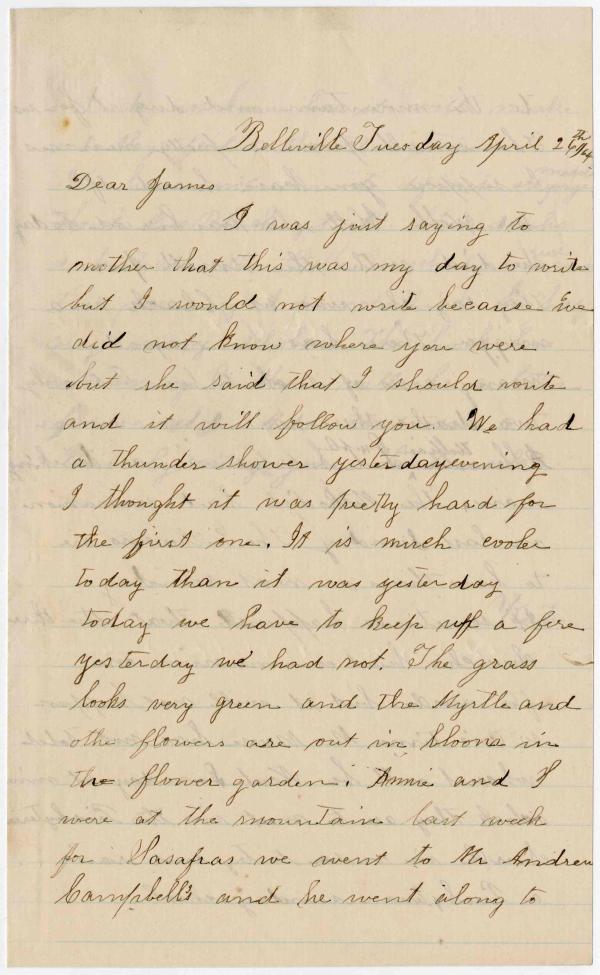 Belleville Tuesday April 26th/64
Dear James
I was just saying to
mother that this was my day to write
but I would not write because we
did not know where you were
but she said that I should write
and it will follow you. We had
a thunder shower yesterdayevening
I thought it was pretty hard for
the first one. It is much cooler
today than it was yesterday
today we have to keep uff a fire
yesterday we had not. The grass
looks very green and the Myrtle and
othe flowers are out in bloom in
the flower garden. Annie and I
were at the mountain last week
for Sasafras we went to Mr Andrew
Campbell's and he went along to